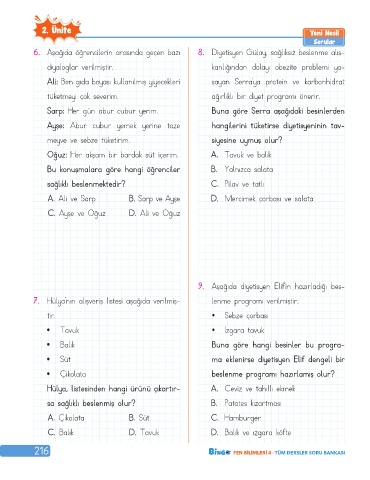 2. Ünite
Yeni Nesil
Sorular
6. Aşağıda öğrencilerin arasında geçen bazı
diyaloglar verilmiştir.
Ali: Ben gıda boyası kullanılmış yiyecekleri
tüketmeyi çok severim.
Sarp: Her gün abur cubur yerim.
Ayşe: Abur cubur yemek yerine taze
meyve ve sebze tüketirim.
Oğuz: Her akşam bir bardak süt içerim.
Bu konuşmalara göre hangi öğrenciler
sağlıklı beslenmektedir?
A. Ali ve Sarp B. Sarp ve Ayşe
C. Ayşe ve Oğuz D. Ali ve Oğuz
7. Hülya'nın alışveriş listesi aşağıda verilmiş-
tir.
• Tavuk
• Balık
• Süt
• Çikolata
Hülya, listesinden hangi ürünü çıkartır-
sa sağlıklı beslenmiş olur?
A. Çikolata B. Süt
C. Balık D. Tavuk
8. Diyetisyen Gülay, sağlıksız beslenme alış-
kanlığından dolayı obezite problemi ya-
şayan Serra'ya protein ve karbonhidrat
ağırlıklı bir diyet programı önerir.
Buna göre Serra aşağıdaki besinlerden
hangilerini tüketirse diyetisyeninin tav-
siyesine uymuş olur?
A. Tavuk ve balık
B. Yalnızca salata
C. Pilav ve tatlı
D. Mercimek çorbası ve salata
9. Aşağıda diyetisyen Elif'in hazırladığı bes-
lenme programı verilmiştir.
• Sebze çorbası
• Izgara tavuk
Buna göre hangi besinler bu progra-
ma eklenirse diyetisyen Elif dengeli bir
beslenme programı hazırlamış olur?
A. Ceviz ve tahıllı ekmek
B. Patates kızartması
C. Hamburger
D. Balık ve ızgara köfte
216
BinGo FEN BİLİMLERİ 4 - TÜM DERSLER SORU BANKASI